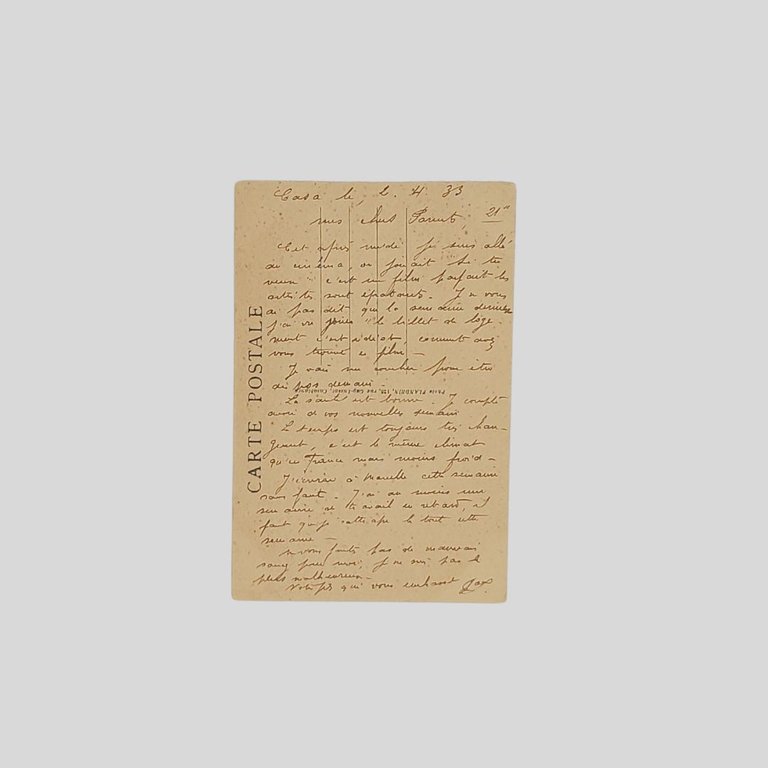 Casa le, 2. 4. 33
mes chers Parents, 21h
Cet après midi je suis allé
au cinéma, on jouait Si tu
veux c'est un film parfait les
artistes sont épatants. Je ne vous
ai pas dit que la semaine dernière
j'ai vu jouer "le billet de loge-
ment c'est idiot, comment avez
vous trouvé ce film —
Je vais me coucher pour être
dispos demain —
La santé est bonne. Je compte
avoir de vos nouvelles demain
Le temps est toujours très chan-
geant, c'est le même climat
qu'en France mais moins froid —
J'écrirai à Marcelle cette semaine
sans faute. J'ai au moins une
semaine de travail en retard, il
faut que je rattrape le tout cette
semaine —
ne vous faites pas de mauvais
sang pour moi, je ne suis pas le
plus malheureux —
Votre fils qui vous embrasse
CARTE POSTALE
Photo FLANDRIN, 128, rue Casablanca